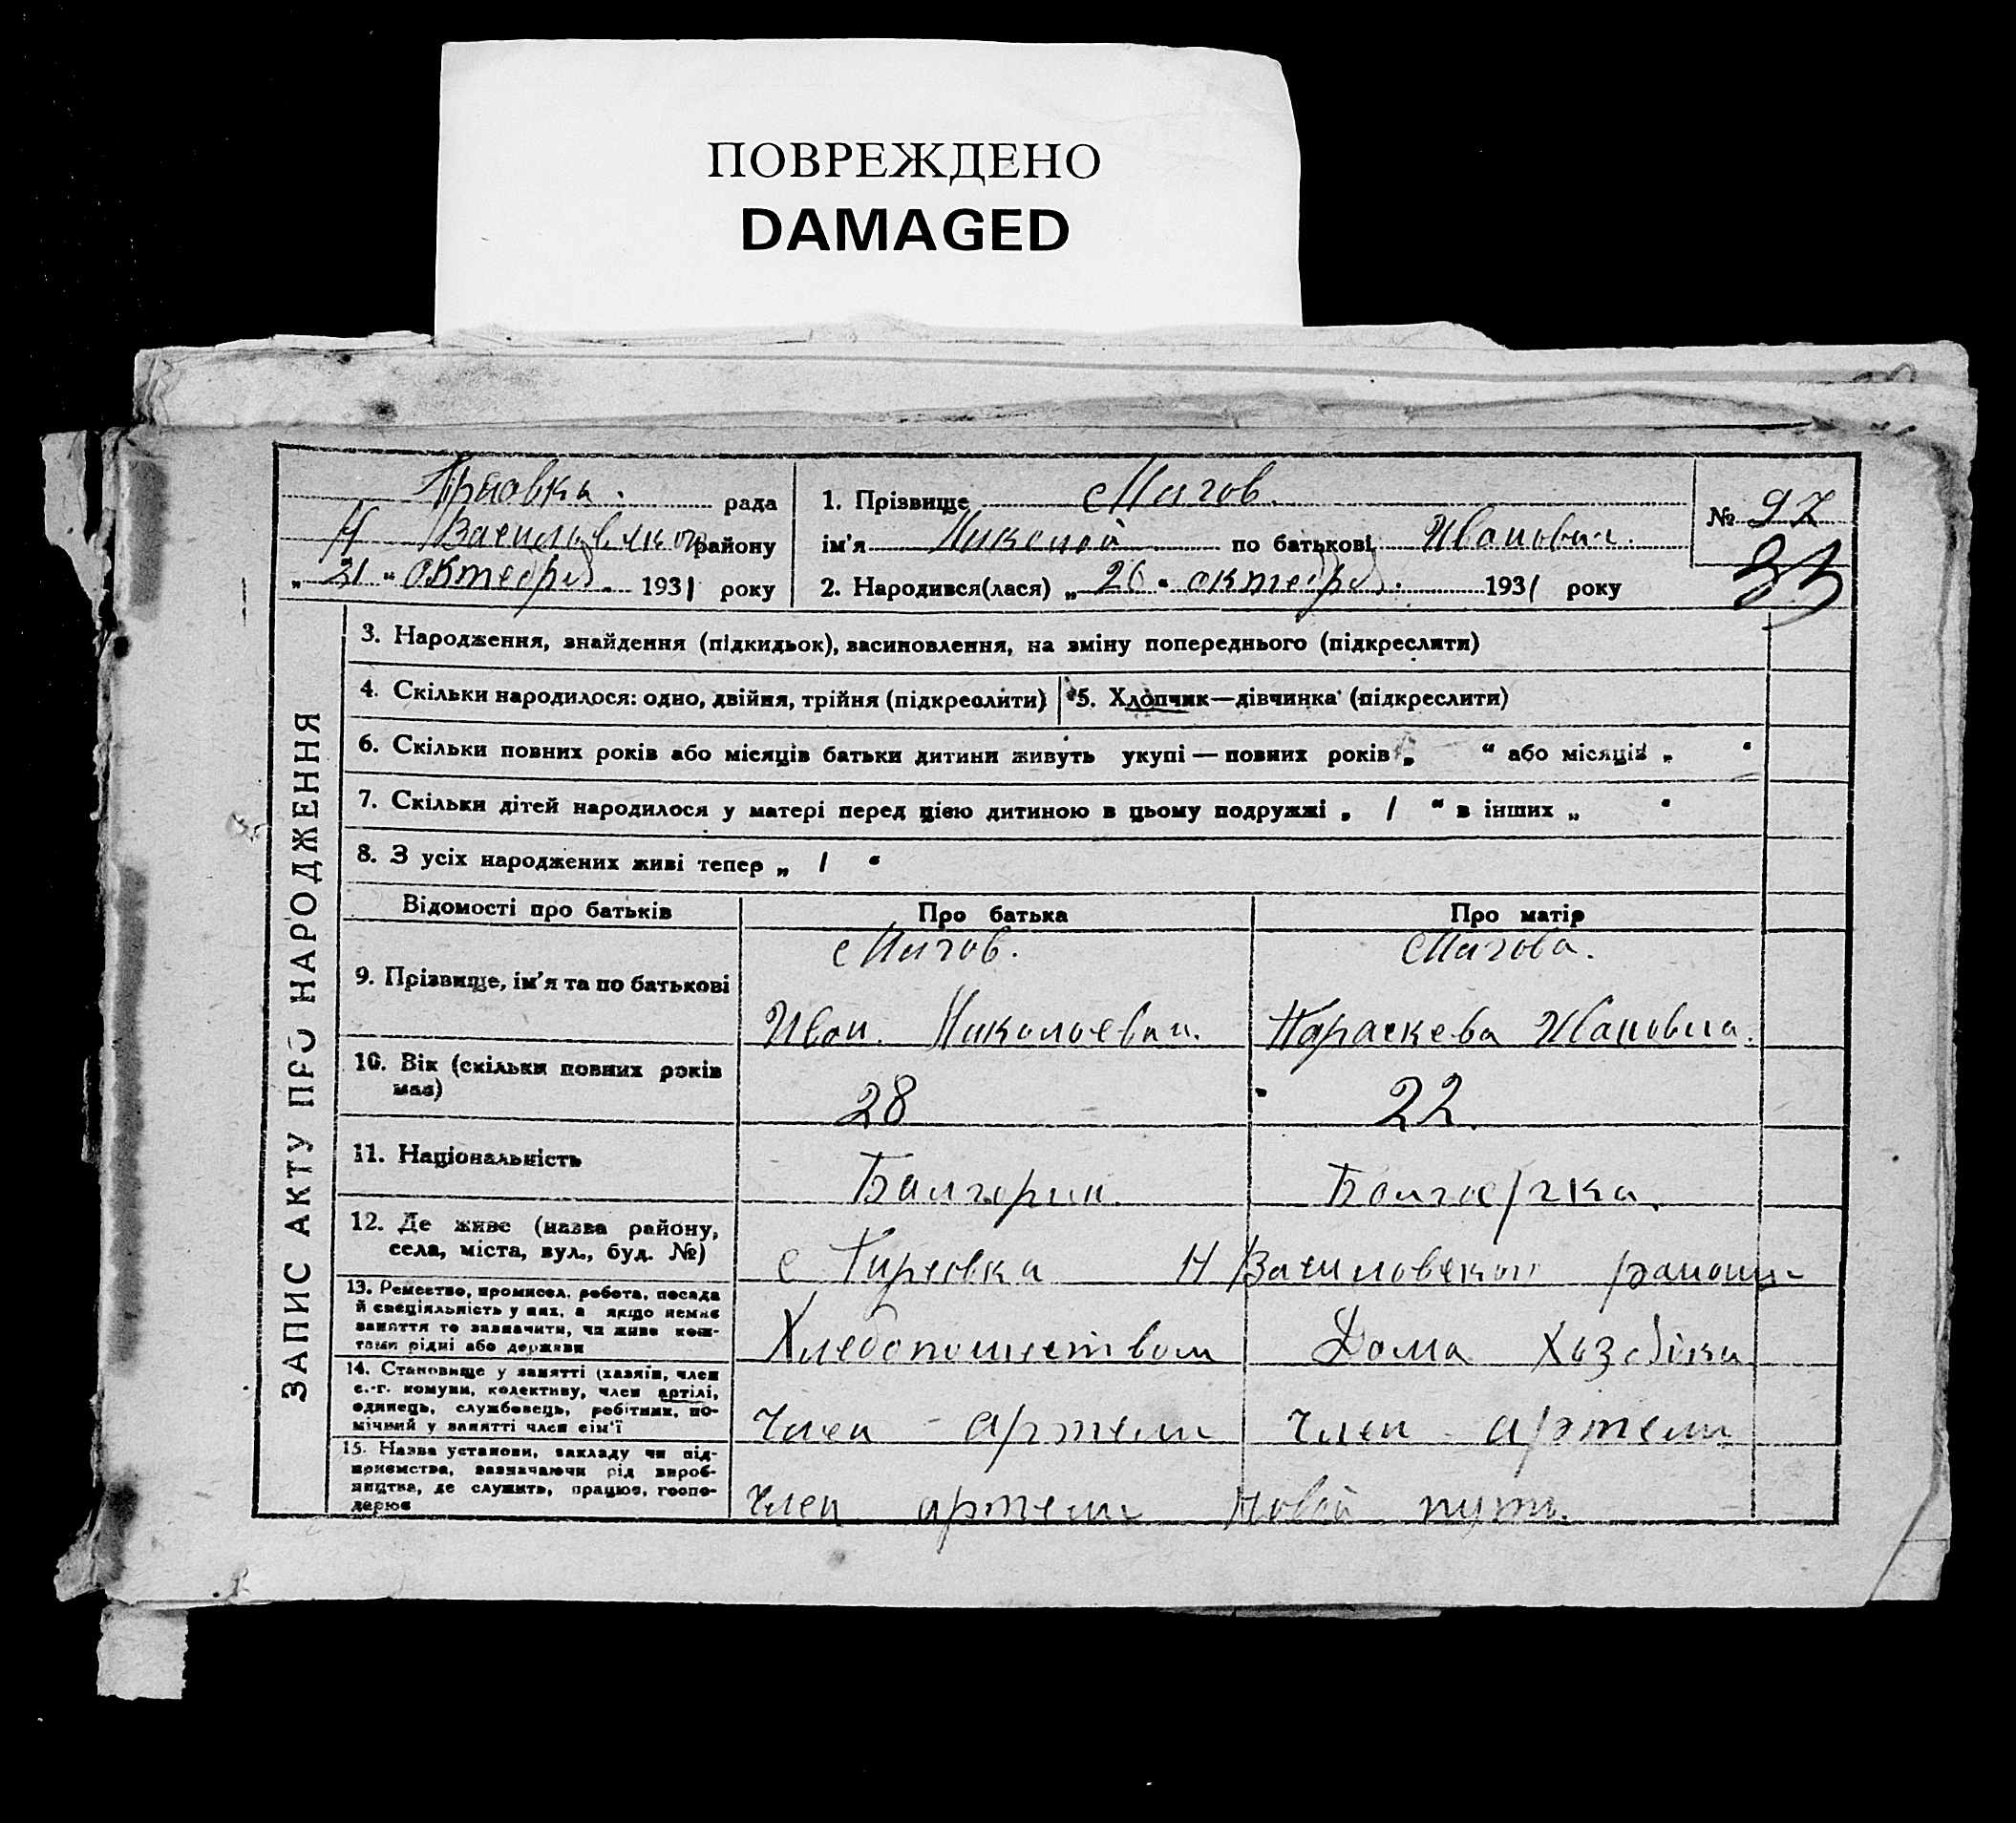 ПОВРЕЖДЕНО
DAMAGED
рада
Н Васильевского району
„ 21 “ октября. 1931 року
1. Прізвище Мигов.
ім'я Николай по батькові Иванович.
2. Народився(лася) „ 20 “ октября. 1931 року
№ 97
33
ЗАПИС АКТУ ПРО НАРОДЖЕННЯ
3. Народження, знайдення (підкидьок), засиновлення, на зміну попереднього (підкреслити)
4. Скільки народилося: одно, двійня, трійня (підкреслити)
5. Хлопчик—дівчинка (підкреслити)
6. Скільки повних років або місяців батьки дитини живуть укупі — повних років „ “ або місяців „ “
7. Скільки дітей народилося у матері перед цією дитиною в цьому подружжі „ 1 “ в інших „ “
8. З усіх народжених живі тепер „ 1 “
Відомості про батьків
Про батька
Про матір
9. Прізвище, ім'я та по батькові
Мигов.
Иван. Николаевич.
Мигова.
Параскева Ивановна.
10. Вік (скільки повних років
має)
28
22.
11. Національність
Болгарин.
Болгарка.
12. Де живе (назва району,
села, міста, вул., буд. №)
с Гирсовка Н Василовском районе
13. Ремество, промисел, робота, посада
й спеціяльність у них, а якщо немає
заняття то зазначити, чи живе кош-
тами рідні або держави
Хлебопашеством
Дома Хозяйка
14. Становище у занятті (хазяїн, член
с.-г. комуни, колективу, член артілі,
одинець, службовець, робітник, по-
мічний у занятті член сім'ї
Член артели
Член артели
15. Назва установи, закладу чи під-
приємства, зазначаючи рід вироб-
ництва, де служить, працює, госпо-
дарює
Член артели Новой путь.